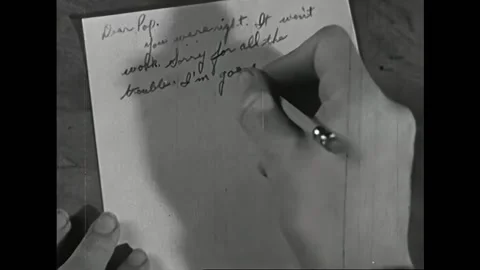 Dear Pop,
You were right. It won't
work. Sorry for all the
trouble. I'm goin